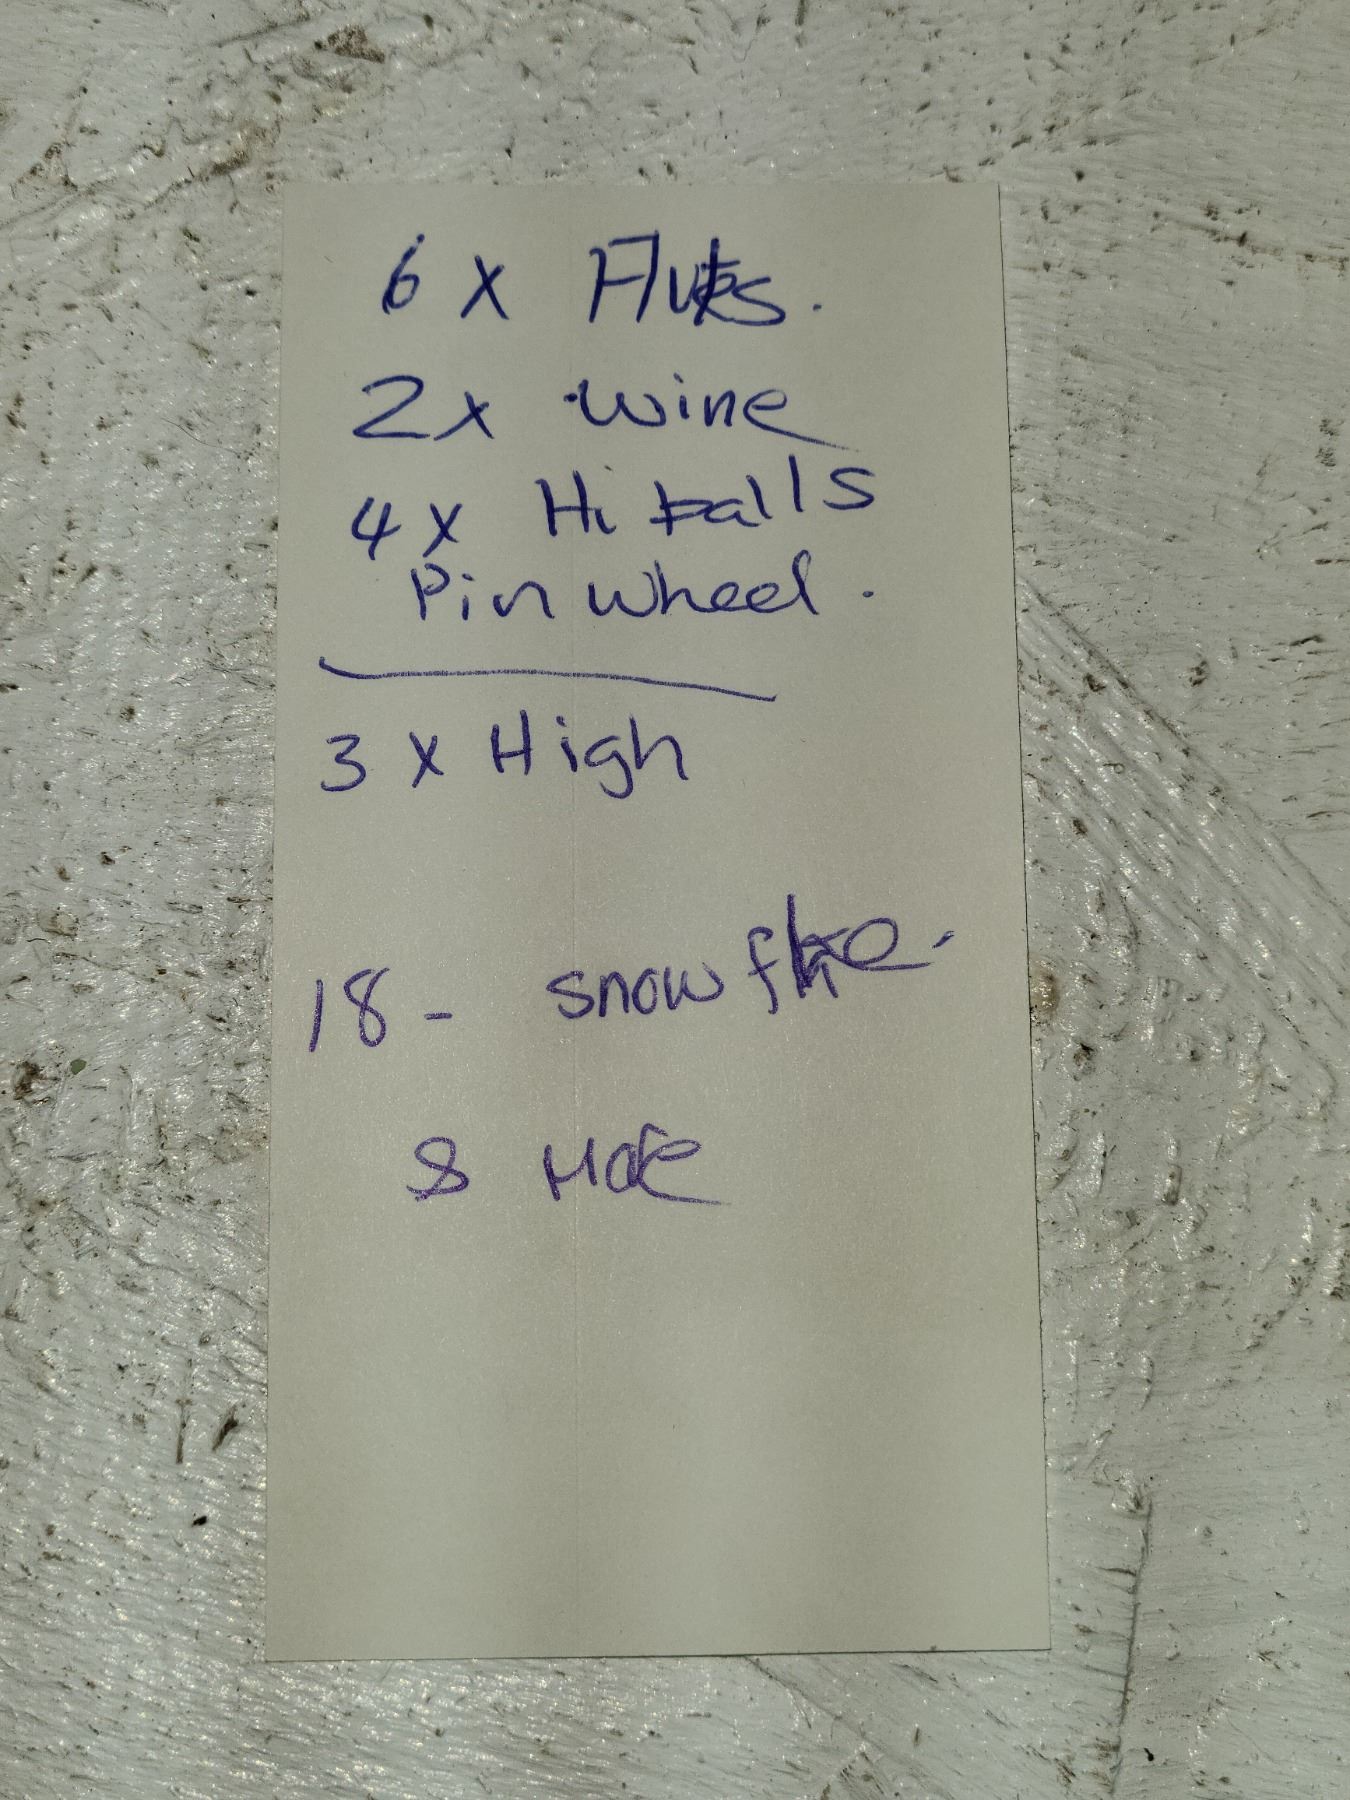 6 x Flutes.
2x wine
4x Hi balls
Pin wheel.
3 x High
18 - snow flake.
8 More